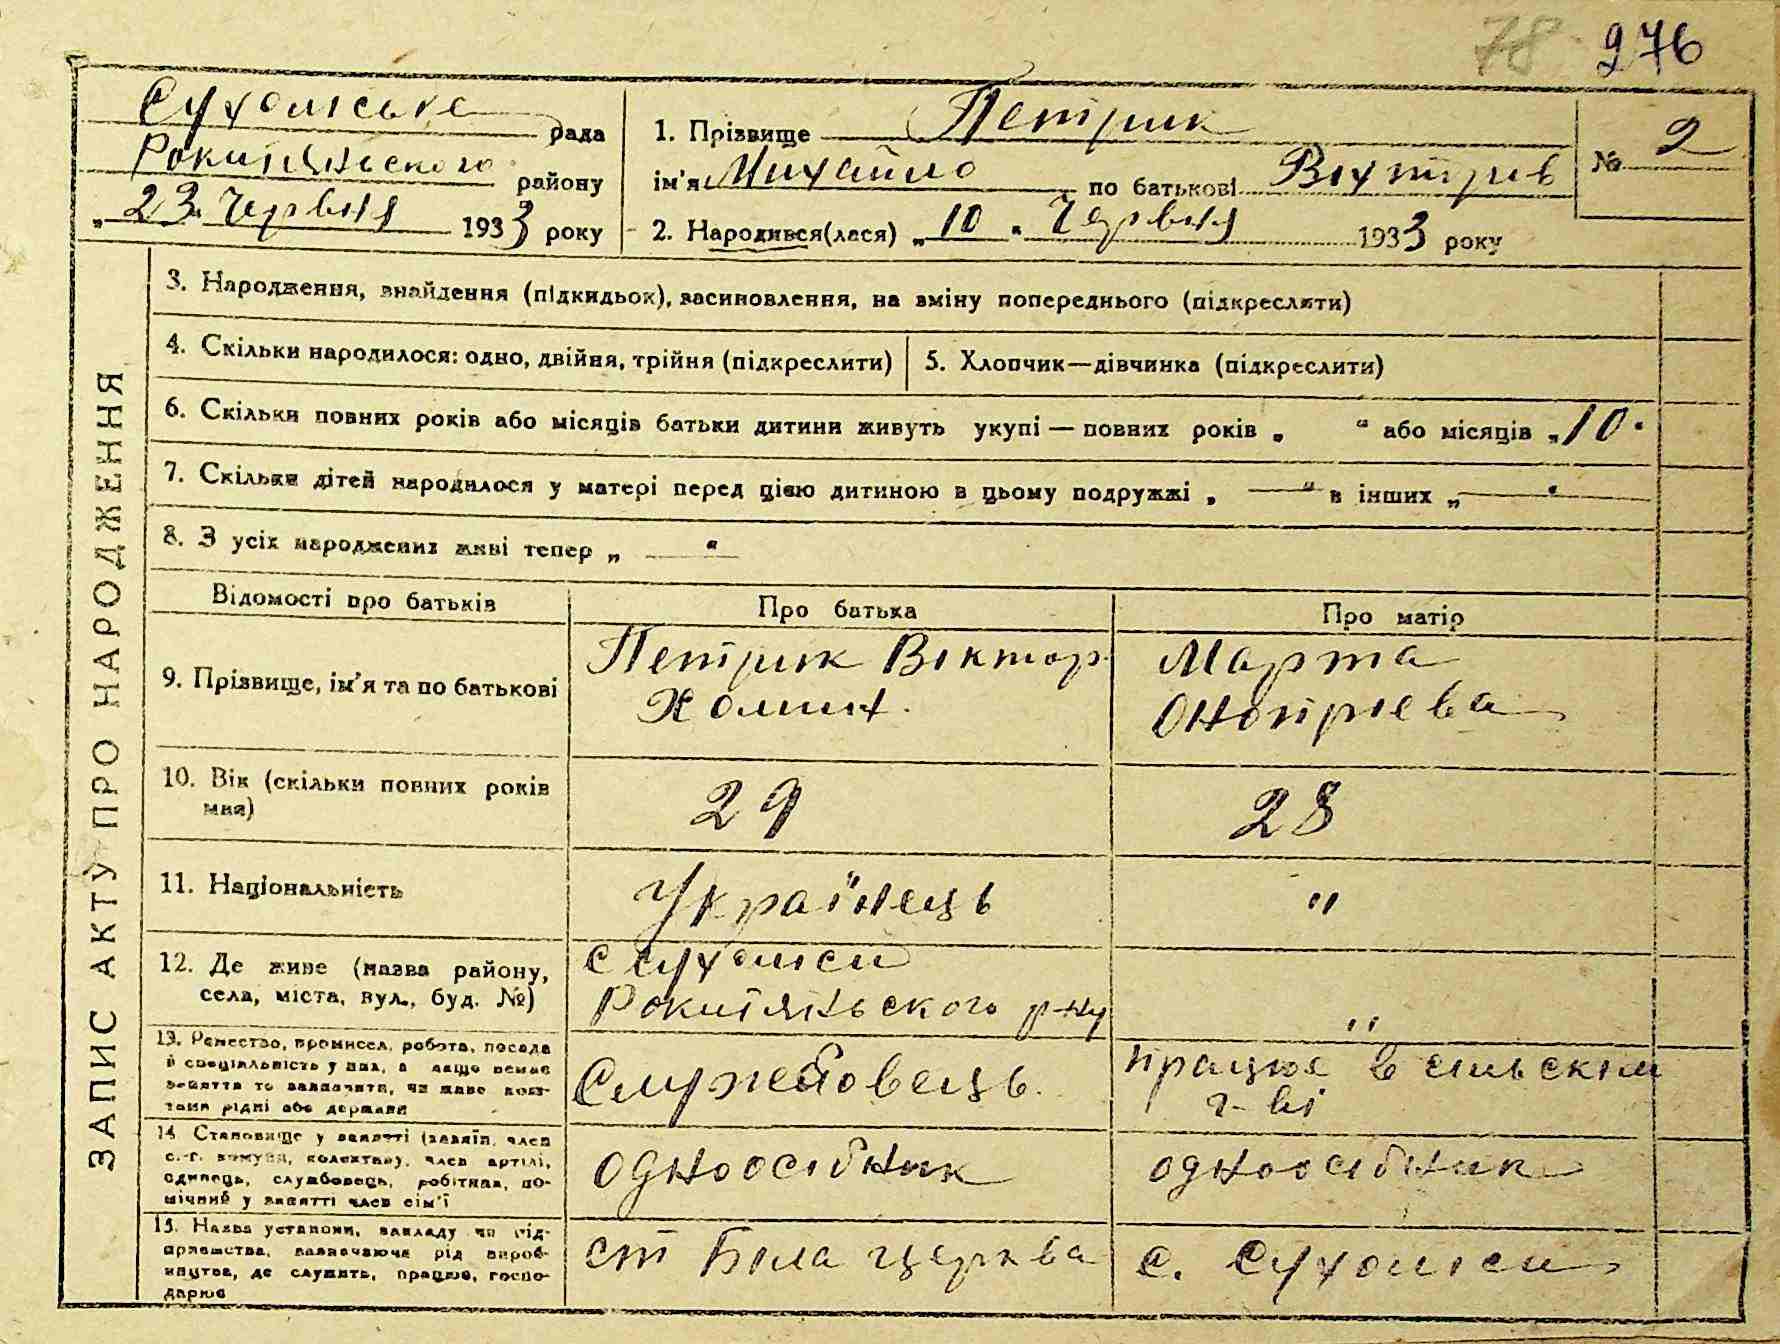 78 276
Сухоліська рада
Рокитянського району
„23" Червня 1933 року
1. Прізвище Петрик
ім'я Михайло по батькові Віхтрів
2. Народився(лася) „10" Червня 1933 року
№ 2
ЗАПИС АКТУ ПРО НАРОДЖЕННЯ
3. Народження, знайдення (підкидьок), засиновлення, на зміну попереднього (підкреслити)
4. Скільки народилося: одно, двійня, трійня (підкреслити) 5. Хлопчик—дівчинка (підкреслити)
6. Скільки повних років або місяців батьки дитини живуть укупі — повних років „ " або місяців „10"
7. Скільки дітей народилося у матері перед цією дитиною в цьому подружжі „ — " в інших „ — "
8. З усіх народжених живі тепер „ — "
Відомості про батьків Про батька Про матір
9. Прізвище, ім'я та по батькові
Петрик Віктор
Марта
Онопріева
10. Вік (скільки повних років
має)
29 28
11. Національність Українець "
12. Де живе (назва району,
села, міста, вул., буд. №)
с Сухоліси
Рокитяньського р-ну "
13. Ремество, промисел, робота, посада
й спеціальність у них, а якщо немає
заняття то зазначити, чи живе кош-
тами рідні або держави
Службовець
працює в сільскім
г-ві
14. Становище у занятті (хазяїн, член
с.-г. комуни, колективу, член артілі,
одинець, службовець, робітник, по-
мічний у занятті член сім'ї
одноосібник одноосібник
15. Назва установи, закладу чи під-
приємства, зазначаючи рід вироб-
ництва, де служить, працює, госпо-
дарює
ст Біла церква с. Сухоліси